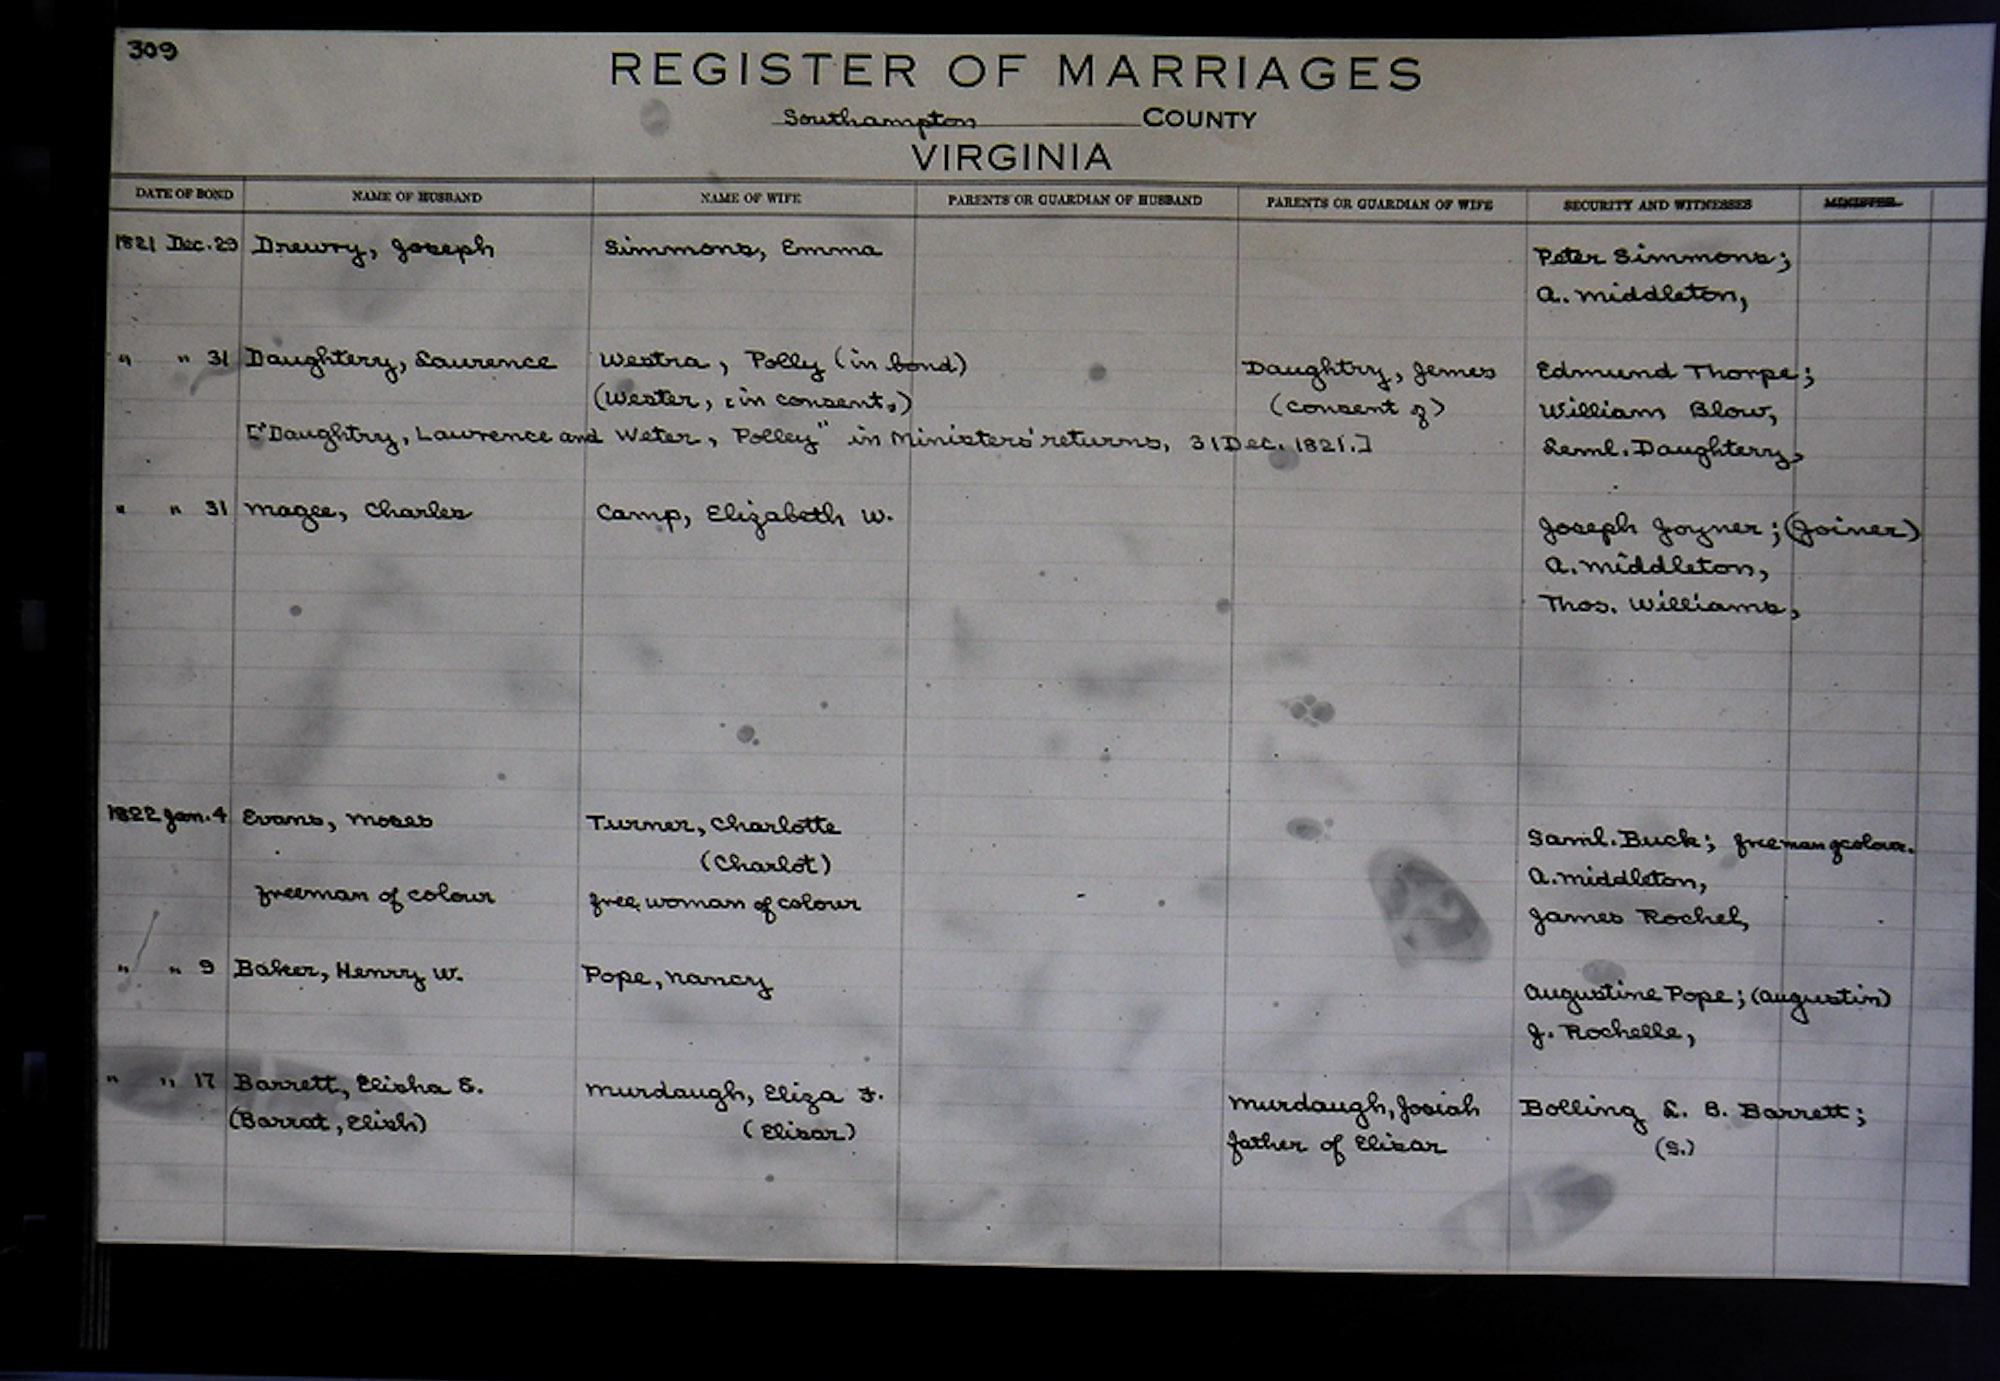 309
REGISTER OF MARRIAGES
Southampton COUNTY
VIRGINIA
DATE OF BOND NAME OF HUSBAND NAME OF WIFE PARENTS OR GUARDIAN OF HUSBAND PARENTS OR GUARDIAN OF WIFE SECURITY AND WITNESSES MINISTER
1821 Dec. 29 Drewry, Joseph Simmons, Emma Peter Simmons;
A. Middleton,
" " 31 Daughtery, Laurence Westra, Polly (in bond) Daughtry, Jemes Edmund Thorpe;
(Wester, in consent,) (consent of) William Blow,
["Daughtry, Lawrence and Weter, Polley" in Ministers' returns, 31 Dec. 1821.] Leml. Daughtery,
" " 31 Magee, Charles Camp, Elizabeth W. Joseph Joyner; (Joiner)
A. Middleton,
Thos. Williams,
1822 Jan. 4 Evans, Moses Turner, Charlotte Saml. Buck; free man of colour.
(Charlot) A. Middleton,
freeman of colour free woman of colour James Rochel,
" " 9 Baker, Henry W. Pope, Nancy Augustine Pope; (Augustin)
J. Rochelle,
" " 17 Barrett, Elisha E. Murdaugh, Eliza F. Murdaugh, Josiah Bolling L. B. Barrett;
(Barrat, Elish) (Elisar) father of Elisar (S.)